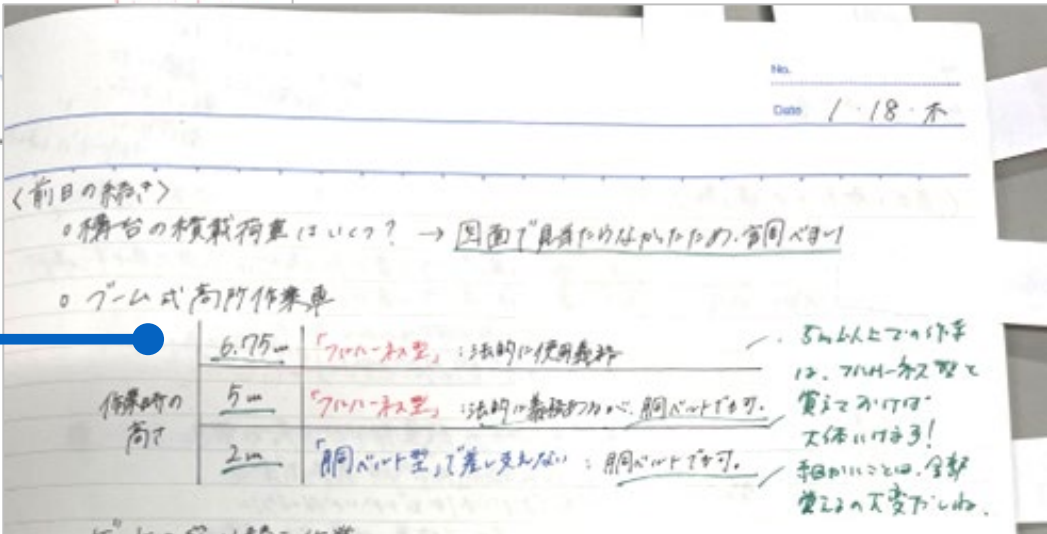 No.
Date 1・18・木
〈前日の続き〉
○構台の積載荷重はいくつ? → 図面で見当たらなかったため、
○ ブーム式高所作業車
作業時の高さ
6.75m 「フルハーネス型」:法的に使用義務
5m 「フルハーネス型」:法的に義務 胴ベルトでも可。
2m 「胴ベルト型」で差し支えない:胴ベルトでも可。
・5m以上での作業
は、フルハーネス型と
覚えておけば
大体いける!
細かいことは、全部
覚えるの大変だしね。